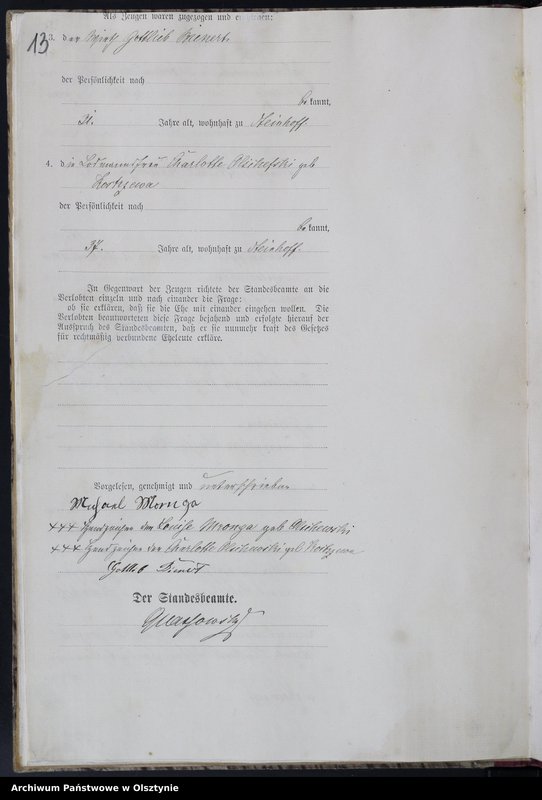 Als Zeugen waren zugezogen und erschienen:
13
3. der Gottlieb
der Persönlichkeit nach
be kannt,
31. Jahre alt, wohnhaft zu Steinhoff
4. die Losmannsfrau Charlotte Olschefski geb
der Persönlichkeit nach
be kannt,
37. Jahre alt, wohnhaft zu Steinhoff.
In Gegenwart der Zeugen richtete der Standesbeamte an die
Verlobten einzeln und nach einander die Frage:
ob sie erklären, daß sie die Ehe mit einander eingehen wollen. Die
Verlobten beantworteten diese Frage bejahend und erfolgte hierauf der
Ausspruch des Standesbeamten, daß er sie nunmehr kraft des Gesetzes
für rechtmäßig verbundene Eheleute erkläre.
Vorgelesen, genehmigt und unterschrieben
Michael Mornga
+++ Handzeichen der Louise Mronga geb. Olschewski
+++ Handzeichen der Charlotte Olschewski geb
Gottlieb
Der Standesbeamte.
Archiwum Państwowe w Olsztynie